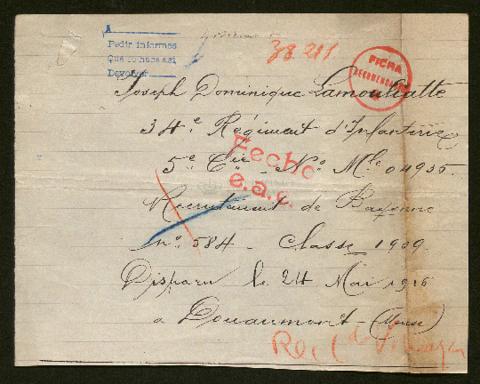 A
Pedir informes
Que se haga así
Devolver
38.211
FICHA
RECOMENDADA
Joseph Dominique Lamouliatte
34e Régiment d'Infanterie
5e Cie - No Mle 04935.
Fecho
e.a.c.
Recrutement de Bayonne
no. 584 - Classe 1909
Disparu le 24 Mai 1916
a Douaumont - (Meuse)